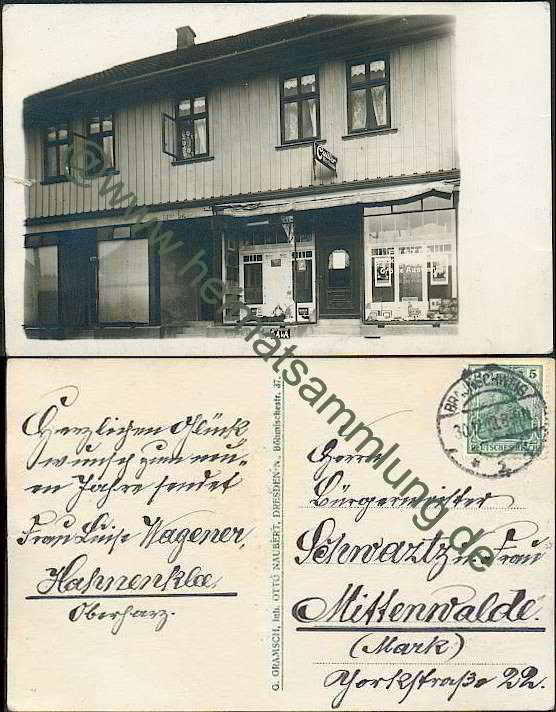 Große Auswahl
@www.heimatsammlung.de
Herzlichen Glück
wunsch zum neu-
en Jahre sendet
Frau Luise Wagener,
Hahnenklee
Oberharz.
G. GRAMSCH, Inh. OTTO NAUBERT, DRESDEN-N., Böhmischestr. 37.
BRAUNSCHWEIG
30.12.
* 2
5
DEUTSCHES
Herrn
Bürgermeister
Schwartz u. Frau
Mittenwalde.
(Mark)
Yorkstraße 22.